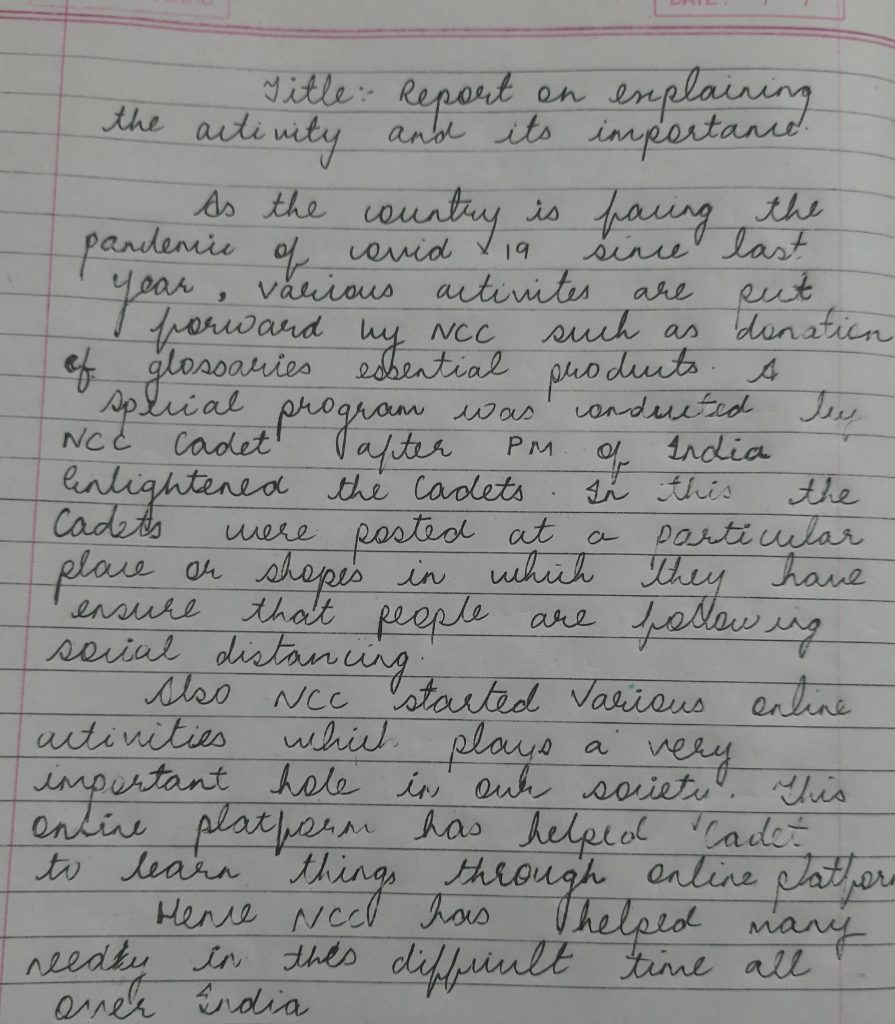 DATE: / /
Title:- Report on explaining
the activity and its importance.
As the country is facing the
pandemic of covid 19 since last
year, various activites are put
forward by NCC such as donation
of glossaries essential products. A
special program was conducted by
NCC Cadet after PM of India
Enlightened the Cadets. In this the
Cadets were posted at a particular
place or shopes in which they have
ensure that people are following
social distancing.
Also NCC started Various online
activities which plays a very
important hole in our society. This
online platform has helped Cadet
to learn things through online platform
Hence NCC has helped many
needy in this difficult time all
over India